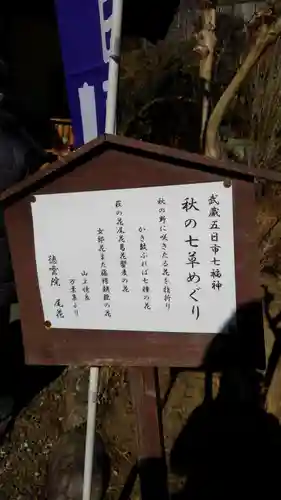 武蔵五日市七福神
秋の七草めぐり
秋の野に咲きたる花を指折り
かき数ふれば七種の花
萩の花尾花葛花瞿麦の花
女郎花また藤袴朝顔の花
山上憶良
万葉集より
徳雲院 尾花